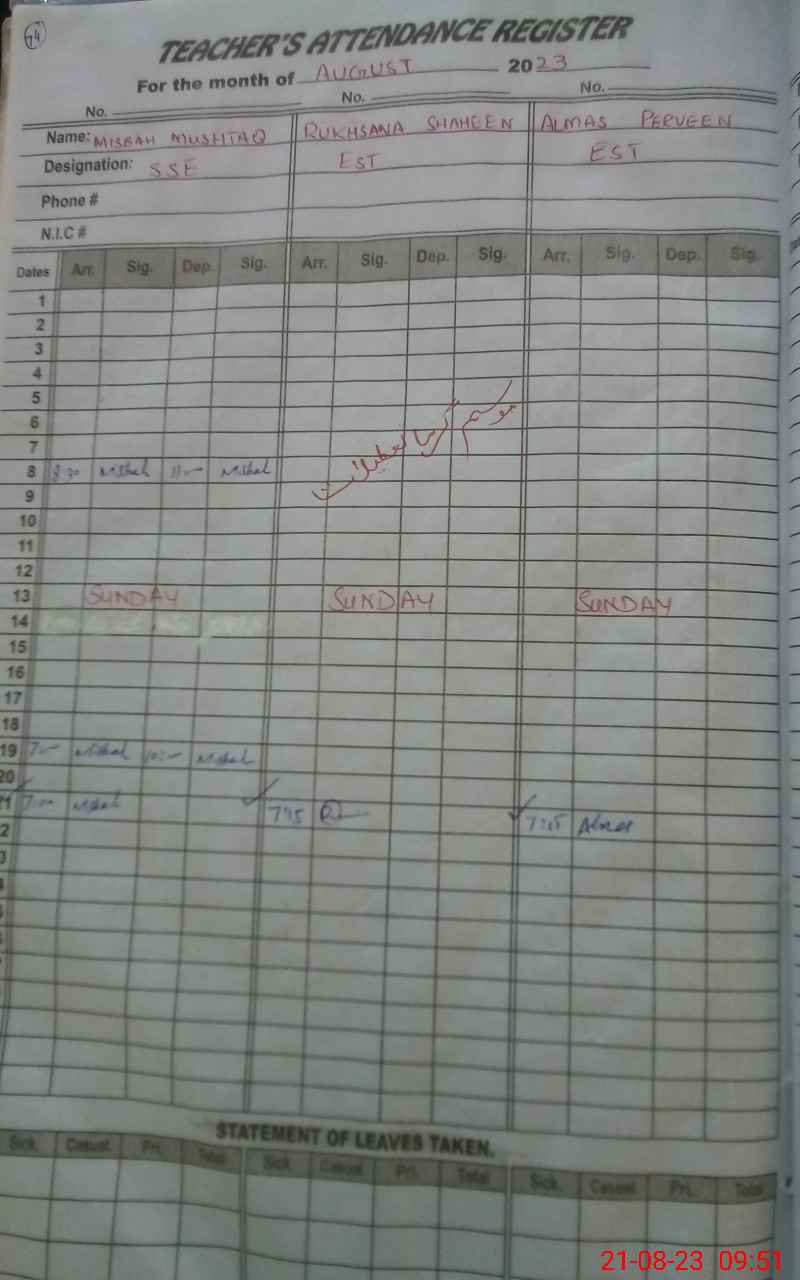 74
TEACHER'S ATTENDANCE REGISTER
For the month of AUGUST 2023
No. No. No.
Name: MISBAH MUSHTAQ RUKHSANA SHAHEEN ALMAS PERVEEN
Designation: SSE EST EST
Phone #
N.I.C #
Dates Arr. Sig. Dep. Sig. Arr. Sig. Dep. Sig. Arr. Sig. Dep. Sig.
1
2
3
4
5
6
موسم گرما تعطیلات
7
8 8:30 Misbah 11- Misbah
9
10
11
12
13 SUNDAY SUNDAY SUNDAY
14
15
16
17
18
19 7- Misbah 10:- Misbah
20
21 7:00 Misbah 7:15 7:15 Almas
2
3
STATEMENT OF LEAVES TAKEN.
Sick. Casual. Pri. Total Sick. Casual. Pri. Total Sick. Casual. Pri. Total
21-08-23 09:51